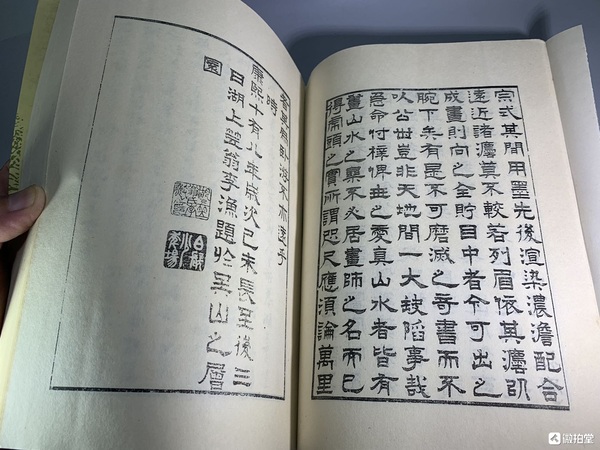 宗式其間用墨先後渲染濃澹配合
遠近諸灋莫不較若列眉依其灋㕥
成畫則向之全貯目中者今可出之
腕下矣有是不可磨滅之奇書而不
㕥公世豈非天地間一大缺陷事哉
急命付梓俾世之愛真山水者皆有
畫山水之樂不必居畫師之名而已
得虎頭之實所謂咫尺應須論萬里
者其為臥遊不亦遠乎
時
康熙十有八年歲次己未長至後三
日湖上笠翁李漁題於吳山之層
園
微拍堂